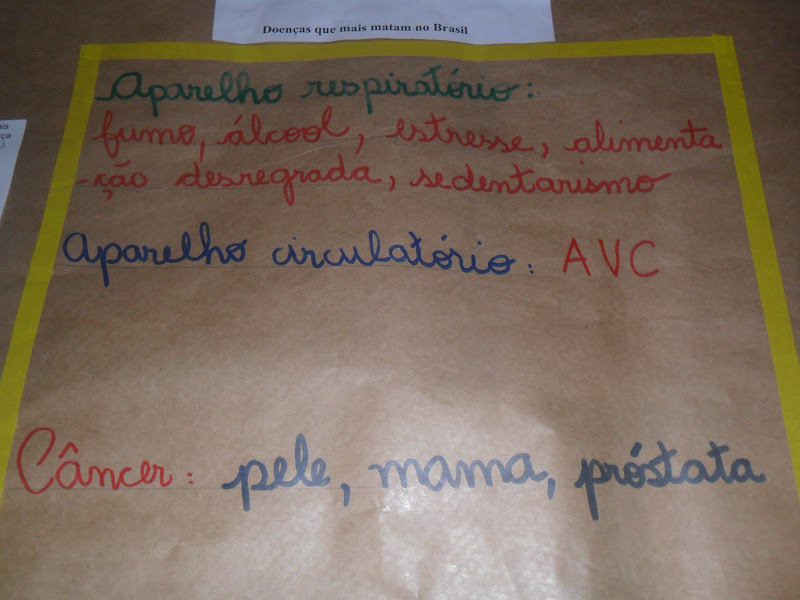 Doenças que mais matam no Brasil
Aparelho respiratório:
fumo, álcool, estresse, alimenta
-ção desregrada, sedentarismo
Aparelho circulatório: AVC
Câncer: pele, mama, próstata